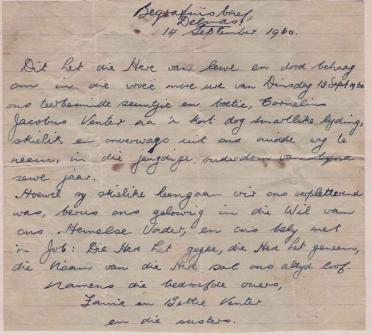 Begrafnisbrief,
Delmas,
14 September 1960.
Dit het die Here van lewe en dood behaag
om in die vroeë more ure van Dinsdag 13 Sept 1960
ons teerbeminde seuntjie en boetie, Cornelius
Jacobus Venter na 'n kort dog smartlike lyding,
skielik en onverwags uit ons midde weg te
neem, in die jeugdige ouderdom van byna
sewe jaar.
Hoewel sy skielike heengaan vir ons verpletterend
was, berus ons gelowig in die Wil van
ons Hemelse Vader, en ons bely met
'n Job: Die Here het gegee, die Here het geneem,
die Naam van die Here sal ons altyd loof.
Namens die bedroefde ouers,
en Bettie Venter
en die susters.